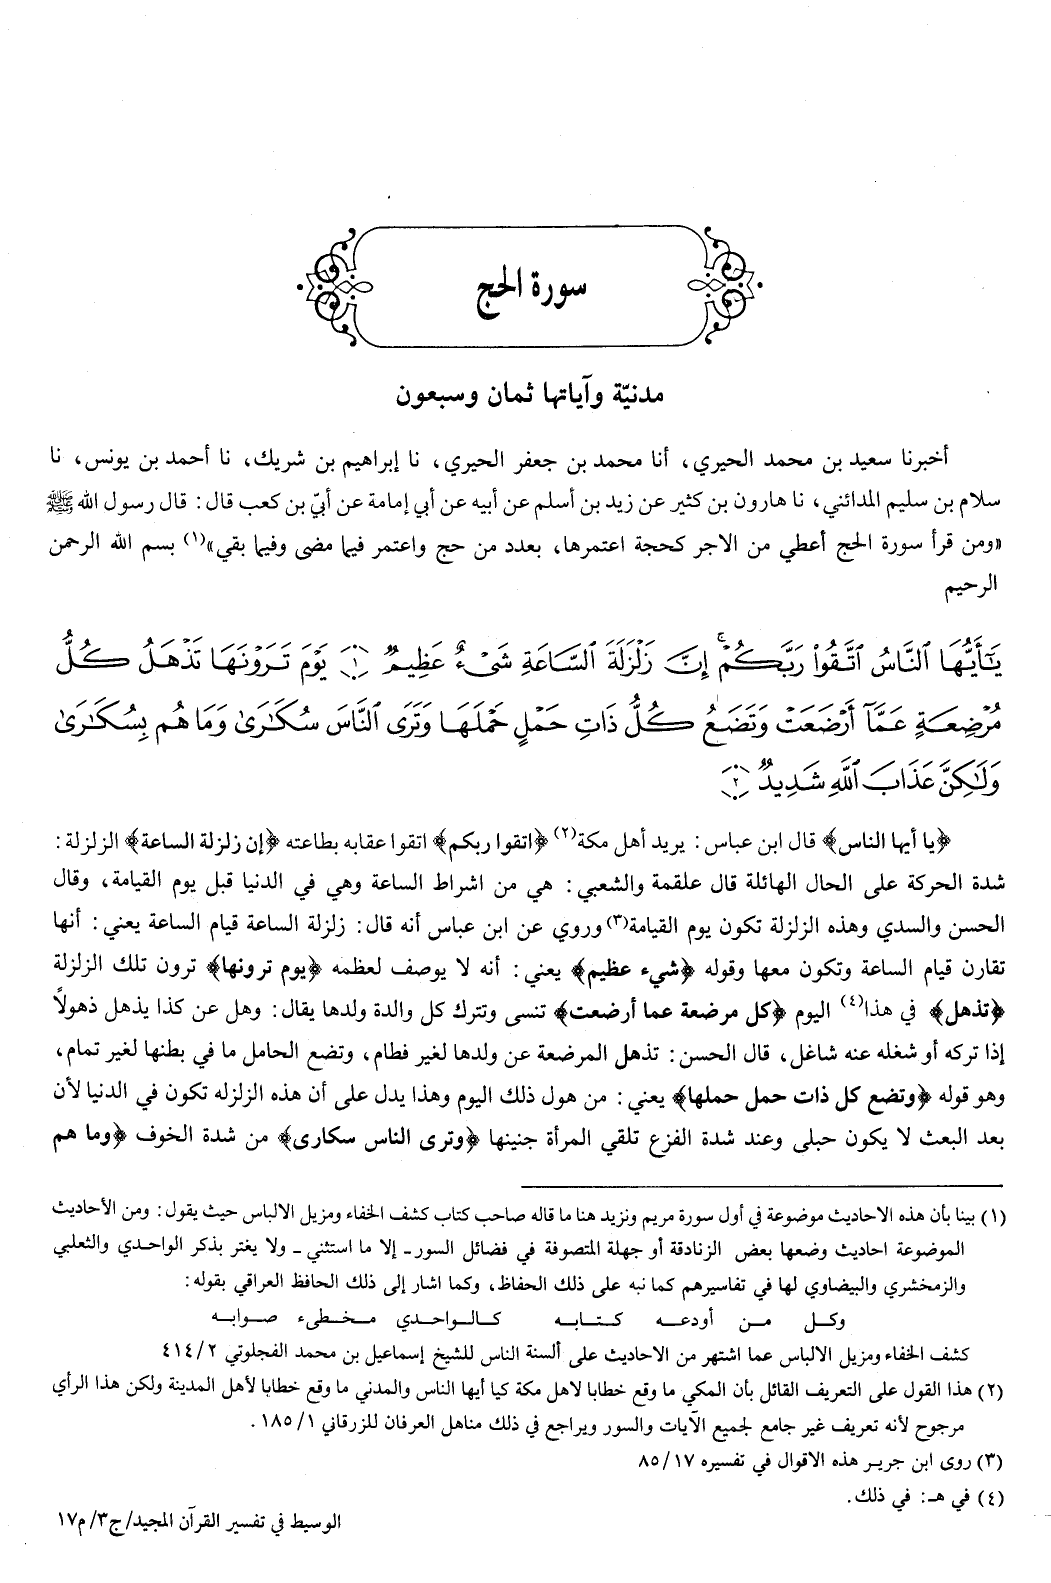 سورة الحج
مدنيّة وآياتها ثمان وسبعون
أخبرنا سعيد بن محمد الحيري، أنا محمد بن جعفر الحيري، نا إبراهيم بن شريك، نا أحمد بن يونس، نا
سلام بن سليم المدائني، نا هارون بن كثير عن زيد بن أسلم عن أبيه عن أبي إمامة عن أبيّ بن كعب قال: قال رسول الله ﷺ
«ومن قرأ سورة الحج أعطي من الاجر كحجة اعتمرها، بعدد من حج واعتمر فيما مضى وفيما بقي»(١) بسم الله الرحمن
الرحيم
يَٰٓأَيُّهَا ٱلنَّاسُ ٱتَّقُوا۟ رَبَّكُمْ ۚ إِنَّ زَلْزَلَةَ ٱلسَّاعَةِ شَىْءٌ عَظِيمٌ ١ يَوْمَ تَرَوْنَهَا تَذْهَلُ كُلُّ
مُرْضِعَةٍ عَمَّآ أَرْضَعَتْ وَتَضَعُ كُلُّ ذَاتِ حَمْلٍ حَمْلَهَا وَتَرَى ٱلنَّاسَ سُكَٰرَىٰ وَمَا هُم بِسُكَٰرَىٰ
وَلَٰكِنَّ عَذَابَ ٱللَّهِ شَدِيدٌ ٢
﴿يا أيها الناس﴾ قال ابن عباس: يريد أهل مكة(٢) ﴿اتقوا ربكم﴾ اتقوا عقابه بطاعته ﴿إن زلزلة الساعة﴾ الزلزلة:
شدة الحركة على الحال الهائلة قال علقمة والشعبي: هي من اشراط الساعة وهي في الدنيا قبل يوم القيامة، وقال
الحسن والسدي وهذه الزلزلة تكون يوم القيامة(٣) وروي عن ابن عباس أنه قال: زلزلة الساعة قيام الساعة يعني: أنها
تقارن قيام الساعة وتكون معها وقوله ﴿شيء عظيم﴾ يعني: أنه لا يوصف لعظمه ﴿يوم ترونها﴾ ترون تلك الزلزلة
﴿تذهل﴾ في هذا(٤) اليوم ﴿كل مرضعة عما أرضعت﴾ تنسى وتترك كل والدة ولدها يقال: وهل عن كذا يذهل ذهولاً
إذا تركه أو شغله عنه شاغل، قال الحسن: تذهل المرضعة عن ولدها لغير فطام، وتضع الحامل ما في بطنها لغير تمام،
وهو قوله ﴿وتضع كل ذات حمل حملها﴾ يعني: من هول ذلك اليوم وهذا يدل على أن هذه الزلزله تكون في الدنيا لأن
بعد البعث لا يكون حبلى وعند شدة الفزع تلقي المرأة جنينها ﴿وترى الناس سكارى﴾ من شدة الخوف ﴿وما هم
(١) بينا بأن هذه الاحاديث موضوعة في أول سورة مريم ونزيد هنا ما قاله صاحب كتاب كشف الخفاء ومزيل الالباس حيث يقول: ومن الأحاديث
الموضوعة احاديث وضعها بعض الزنادقة أو جهلة المتصوفة في فضائل السور ـ إلا ما استثني ـ ولا يغتر بذكر الواحدي والثعلبي
والزمخشري والبيضاوي لها في تفاسيرهم كما نبه على ذلك الحفاظ، وكما اشار إلى ذلك الحافظ العراقي بقوله:
وكـل مـن أودعـه كـتـابـه كـالـواحـدي مـخـطىء صـوابـه
كشف الخفاء ومزيل الالباس عما اشتهر من الاحاديث على ألسنة الناس للشيخ إسماعيل بن محمد الفجلوتي ٤١٤/٢
(٢) هذا القول على التعريف القائل بأن المكي ما وقع خطابا لاهل مكة كيا أيها الناس والمدني ما وقع خطابا لأهل المدينة ولكن هذا الرأي
مرجوح لأنه تعريف غير جامع لجميع الآيات والسور ويراجع في ذلك مناهل العرفان للزرقاني ١٨٥/١.
(٣) روى ابن جرير هذه الاقوال في تفسيره ٨٥/١٧
(٤) في هـ: في ذلك.
الوسيط في تفسير القرآن المجيد/ج٣/م١٧